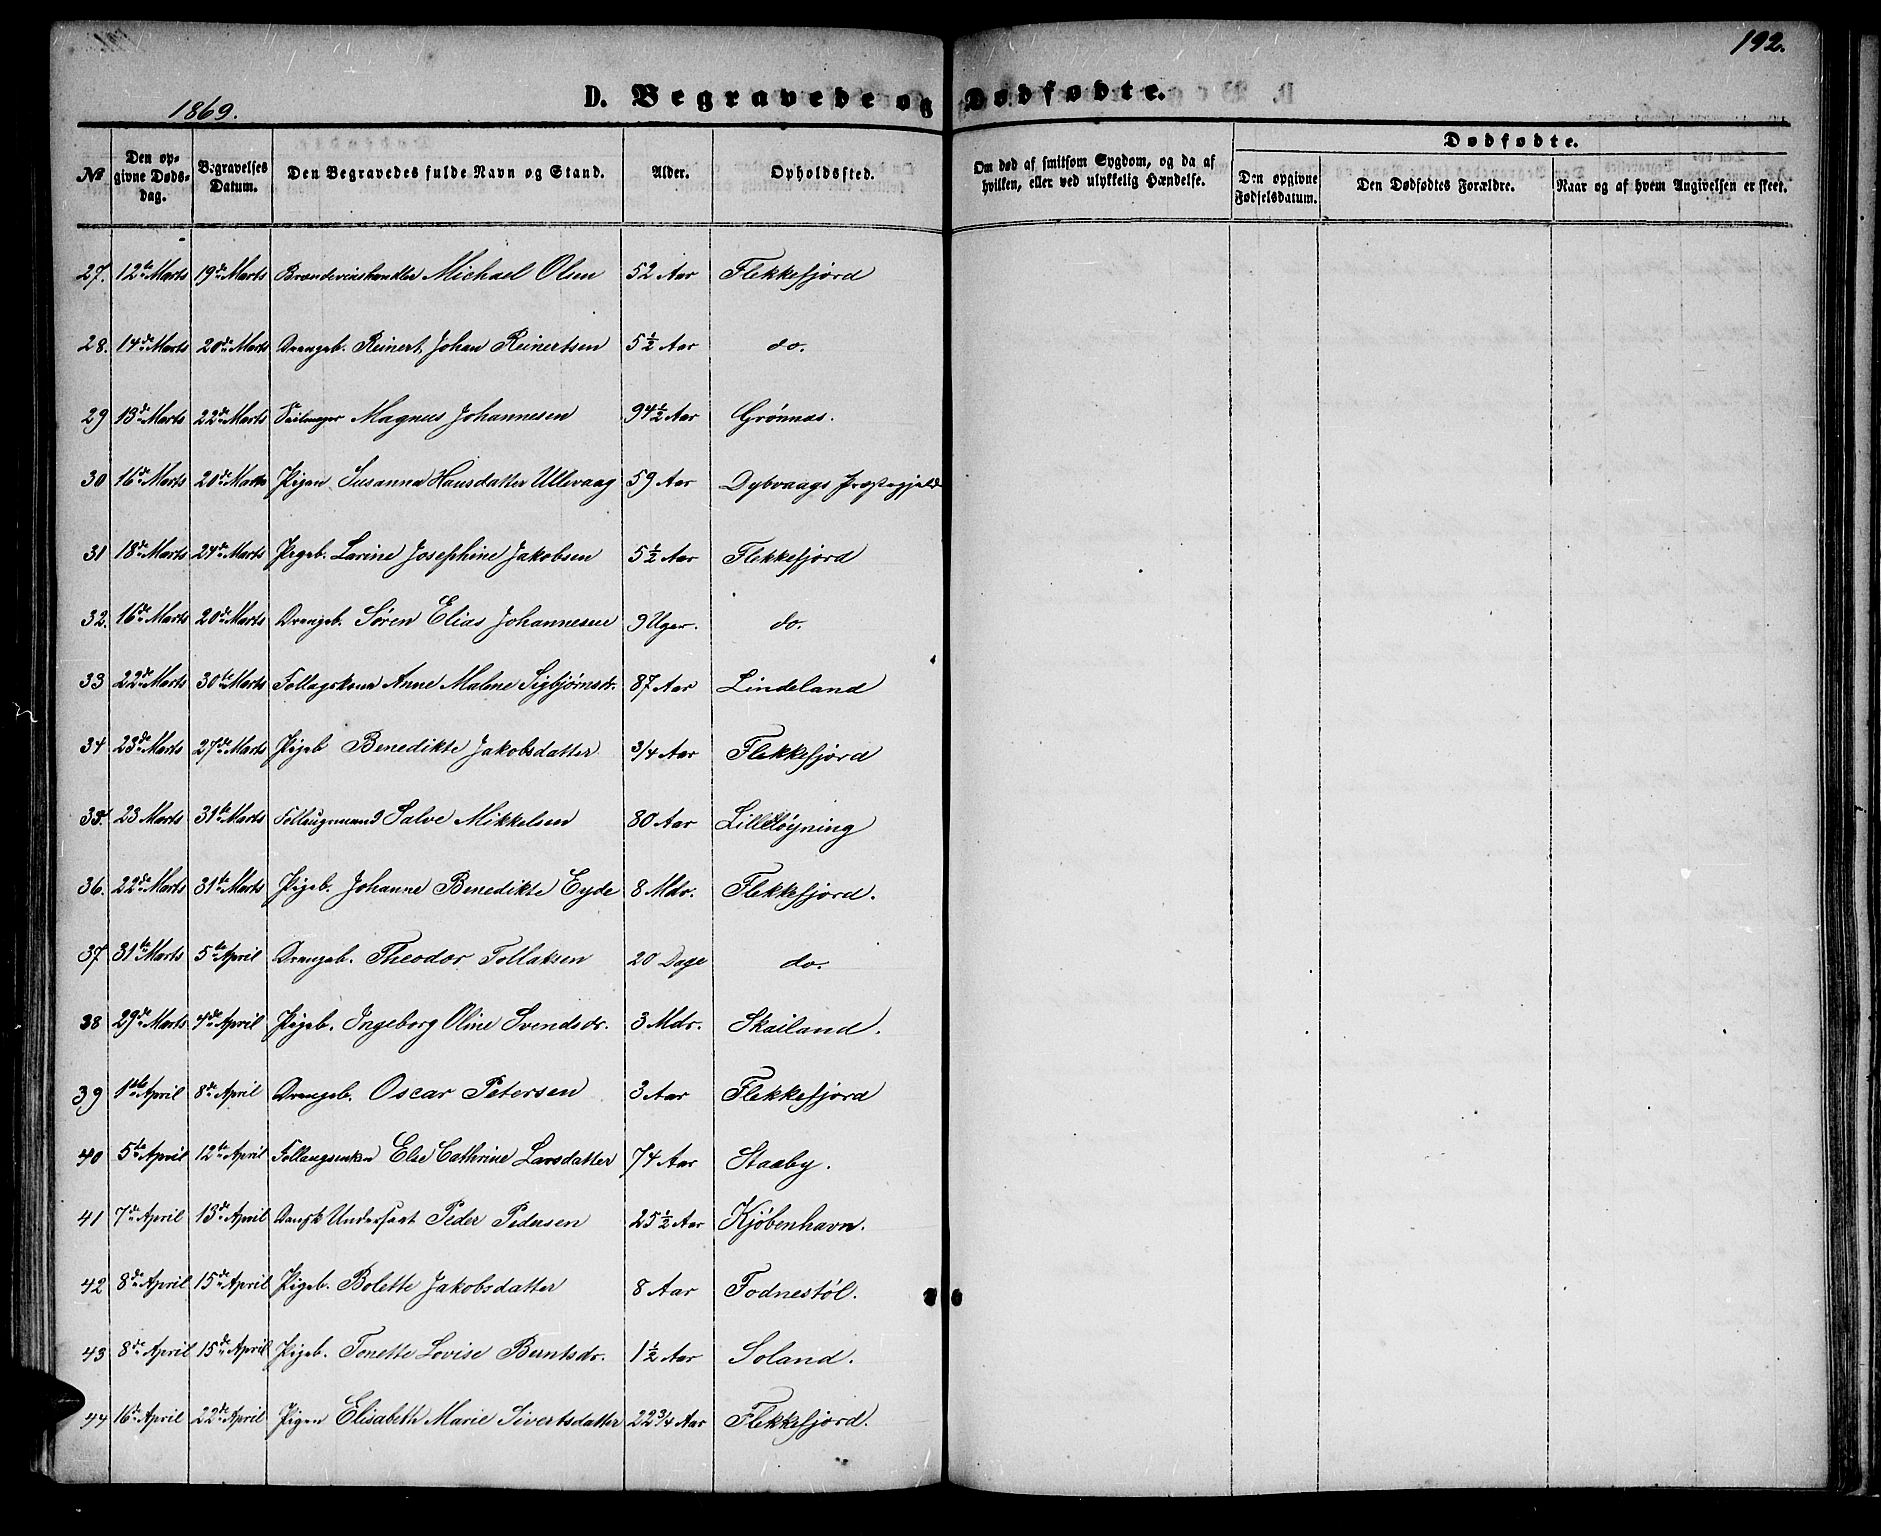 192.
1869.
D. Begravede og Dødfødte.
№
Den opgivne Dødsdag.
Begravelses Datum.
Den Begravedes fulde Navn og Stand.
Alder.
Opholdssted.
Om død af smitsom Sygdom, og da af hvilken, eller ved ulykkelig Hændelse.
Dødfødte.
Den opgivne Fødselsdatum.
Den Dødfødtes Forældre.
Naar og af hvem Angivelsen er skeet.
27. 12te Marts 19de Marts Brændeviinshandler Michael Olsen 52 Aar Flekkefjord
28. 14de Marts 20de Marts Drengeb. Reinert Johan Reinertsen 5½ Aar do.
29 13de Marts 22de Marts Magnus Johannesen 94½ Aar Grønnæs.
30 16de Marts 20de Marts Pigen Susanna Hansdatter Ullevaag 59 Aar Dybvaags Præstegjeld
31 18de Marts 24de Marts Pigeb. Larine Josephine Jakobsen 5½ Aar Flekkefjord
32. 16de Marts 20de Marts Drengeb. Søren Elias Johannesen 9 Uger. do.
33 22de Marts 30te Marts Follagskone Anne Malene Sigbjørnsdr. 87 Aar Lindeland
34 23de Marts 27de Marts Pigeb Benedikte Jakobsdatter 3/4 Aar Flekkefjord
35. 23 Marts 31te Marts Follaugsmand Salve Mikkelsen 80 Aar Lilleløyning
36. 22de Marts 31te Marts Pigeb. Johanne Benedikte Eyde 8 Mdr. Flekkefjord.
37 31te Marts 5te April Drengeb. Theodor Tollaksen 20 Dage do.
38 29de Marts 4de April Pigeb. Ingeborg Oline Svendsdr. 3 Mdr. Skailand.
39 1ste April 8de April Drengeb. Oscar Petersen 3 Aar Flekkefjord
40 5te April 12te April Else Cathrine Larsdatter 74 Aar Staaby.
41 7de April 13de April Dansk Undersaat Peder Pedersen 25½ Aar Kjøbenhavn.
42 8de April 15de April Pigeb. Bolette Jakobsdatter 8 Aar Fodnestøl.
43 8de April 15de April Pigeb. Tonette Lovise Berntsdr. 1½ Aar Soland.
44 16de April 22de April Pigen Elisabeth Marie Sivertsdatter 22 3/4 Aar Flekkefjord.